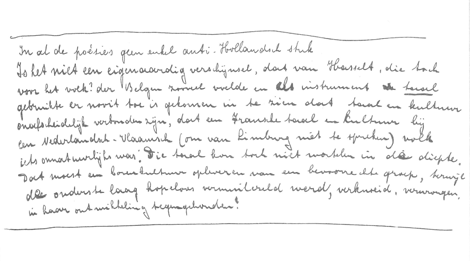 In al de poësies geen enkel anti-Hollandsch stuk
Is het niet een eigenaardig verschijnsel, dat van Hasselt, die toch
voor het volk? der Belgen zooveel voelde en als instrument de taal
gebruikte er nooit toe is gekomen in te zien dat taal en kultuur
onafscheidelijk verbonden zijn, dat een Fransche taal en kultuur bij
een Nederlandsch-Vlaamsch (om van Limburg niet te spreken) volk
iets onnatuurlijks was. Die taal kon toch niet wortelen in de diepte.
Dat moest een bovenkultuur opleveren van een bevoorrechte groep, terwijl
de onderste laag hopeloos vermuilereld werd, verknoeid, verwrongen,
in haar ontwikkeling tegengehouden!